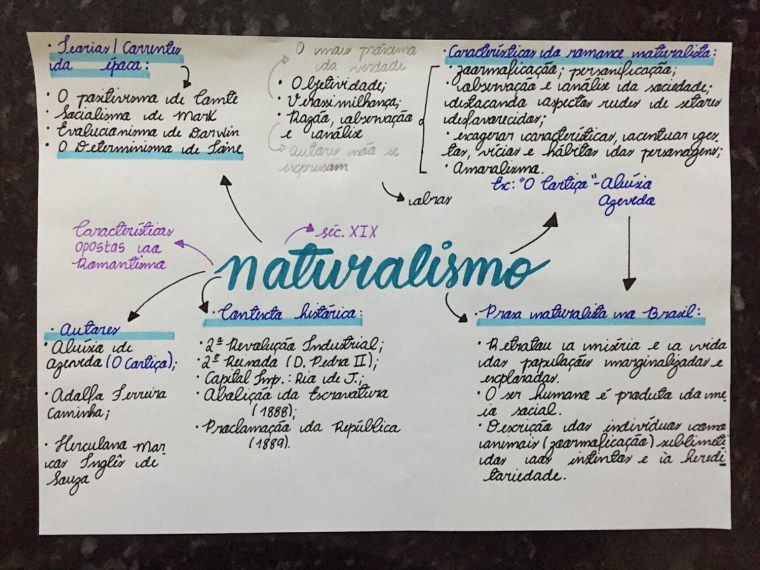 · Teorias / Correntes
da época:
· O positivismo de Comte
· Socialismo de Marx
· Evolucionismo de Darwin
· O Determinismo de Taine
O mais próximo
da verdade
· Objetividade;
· Verossimilhança;
· Razão, observação
e análise
· autores não se
expressam
obras
· Características do romance naturalista:
· zoormoficação; personificação;
· observação e análise da sociedade;
destacando aspectos rudes de setores
desfavorecidos;
· exagerar características, acentuar ges-
tos, vícios e hábitos dos personagens;
· Amoralismo.
Ex: "O Cortiço" - Aluísio
Azevedo
Características
opostas ao
Romantismo
séc. XIX
naturalismo
· Autores
· Aluísio de
Azevedo (O Cortiço);
· Adolfo Ferreira
Caminha;
· Herculano Mar
cos Inglês de
Souza
· Contexto histórico:
· 2ª Revolução Industrial;
· 2º Reinado (D. Pedro II);
· Capital Imp.: Rio de J.;
· Abolição da Escravatura
(1888);
· Proclamação da República
(1889).
· Prosa naturalista no Brasil:
· Retratou a miséria e a vida
das populações marginalizadas e
exploradas.
· O ser humano é produto do me
io social.
· Descrição dos indivíduos como
animais (zoormoficação) submeti
dos aos instintos e à heredi
tariedade.